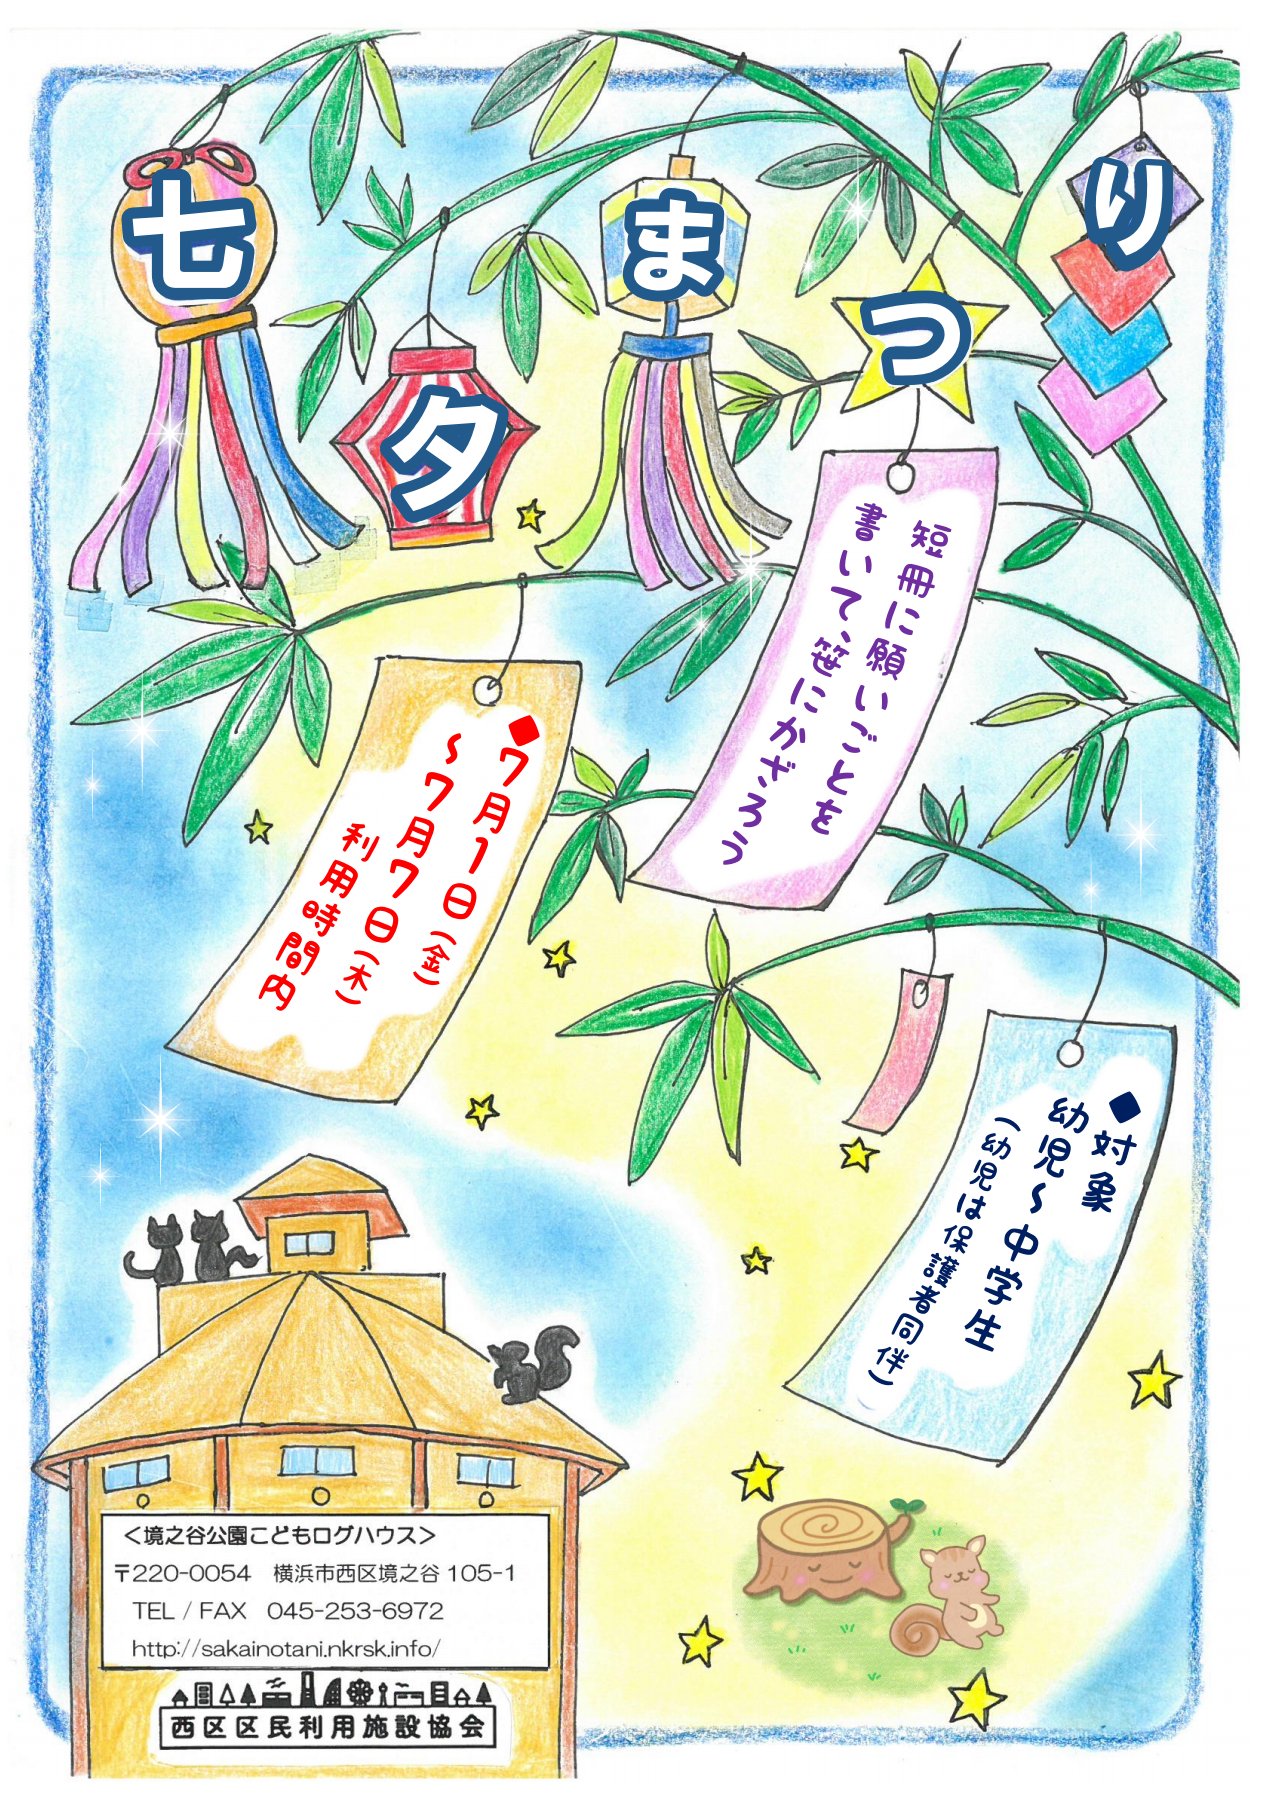 七夕まつり
短冊に願いごとを
書いて、笹にかざろう
◆7月1日(金)
~7月7日(木)
利用時間内
◆対象
幼児~中学生
(幼児は保護者同伴)
<境之谷公園こどもログハウス>
〒220-0054 横浜市西区境之谷105-1
TEL / FAX 045-253-6972
http://sakainotani.nkrsk.info/
西区区民利用施設協会